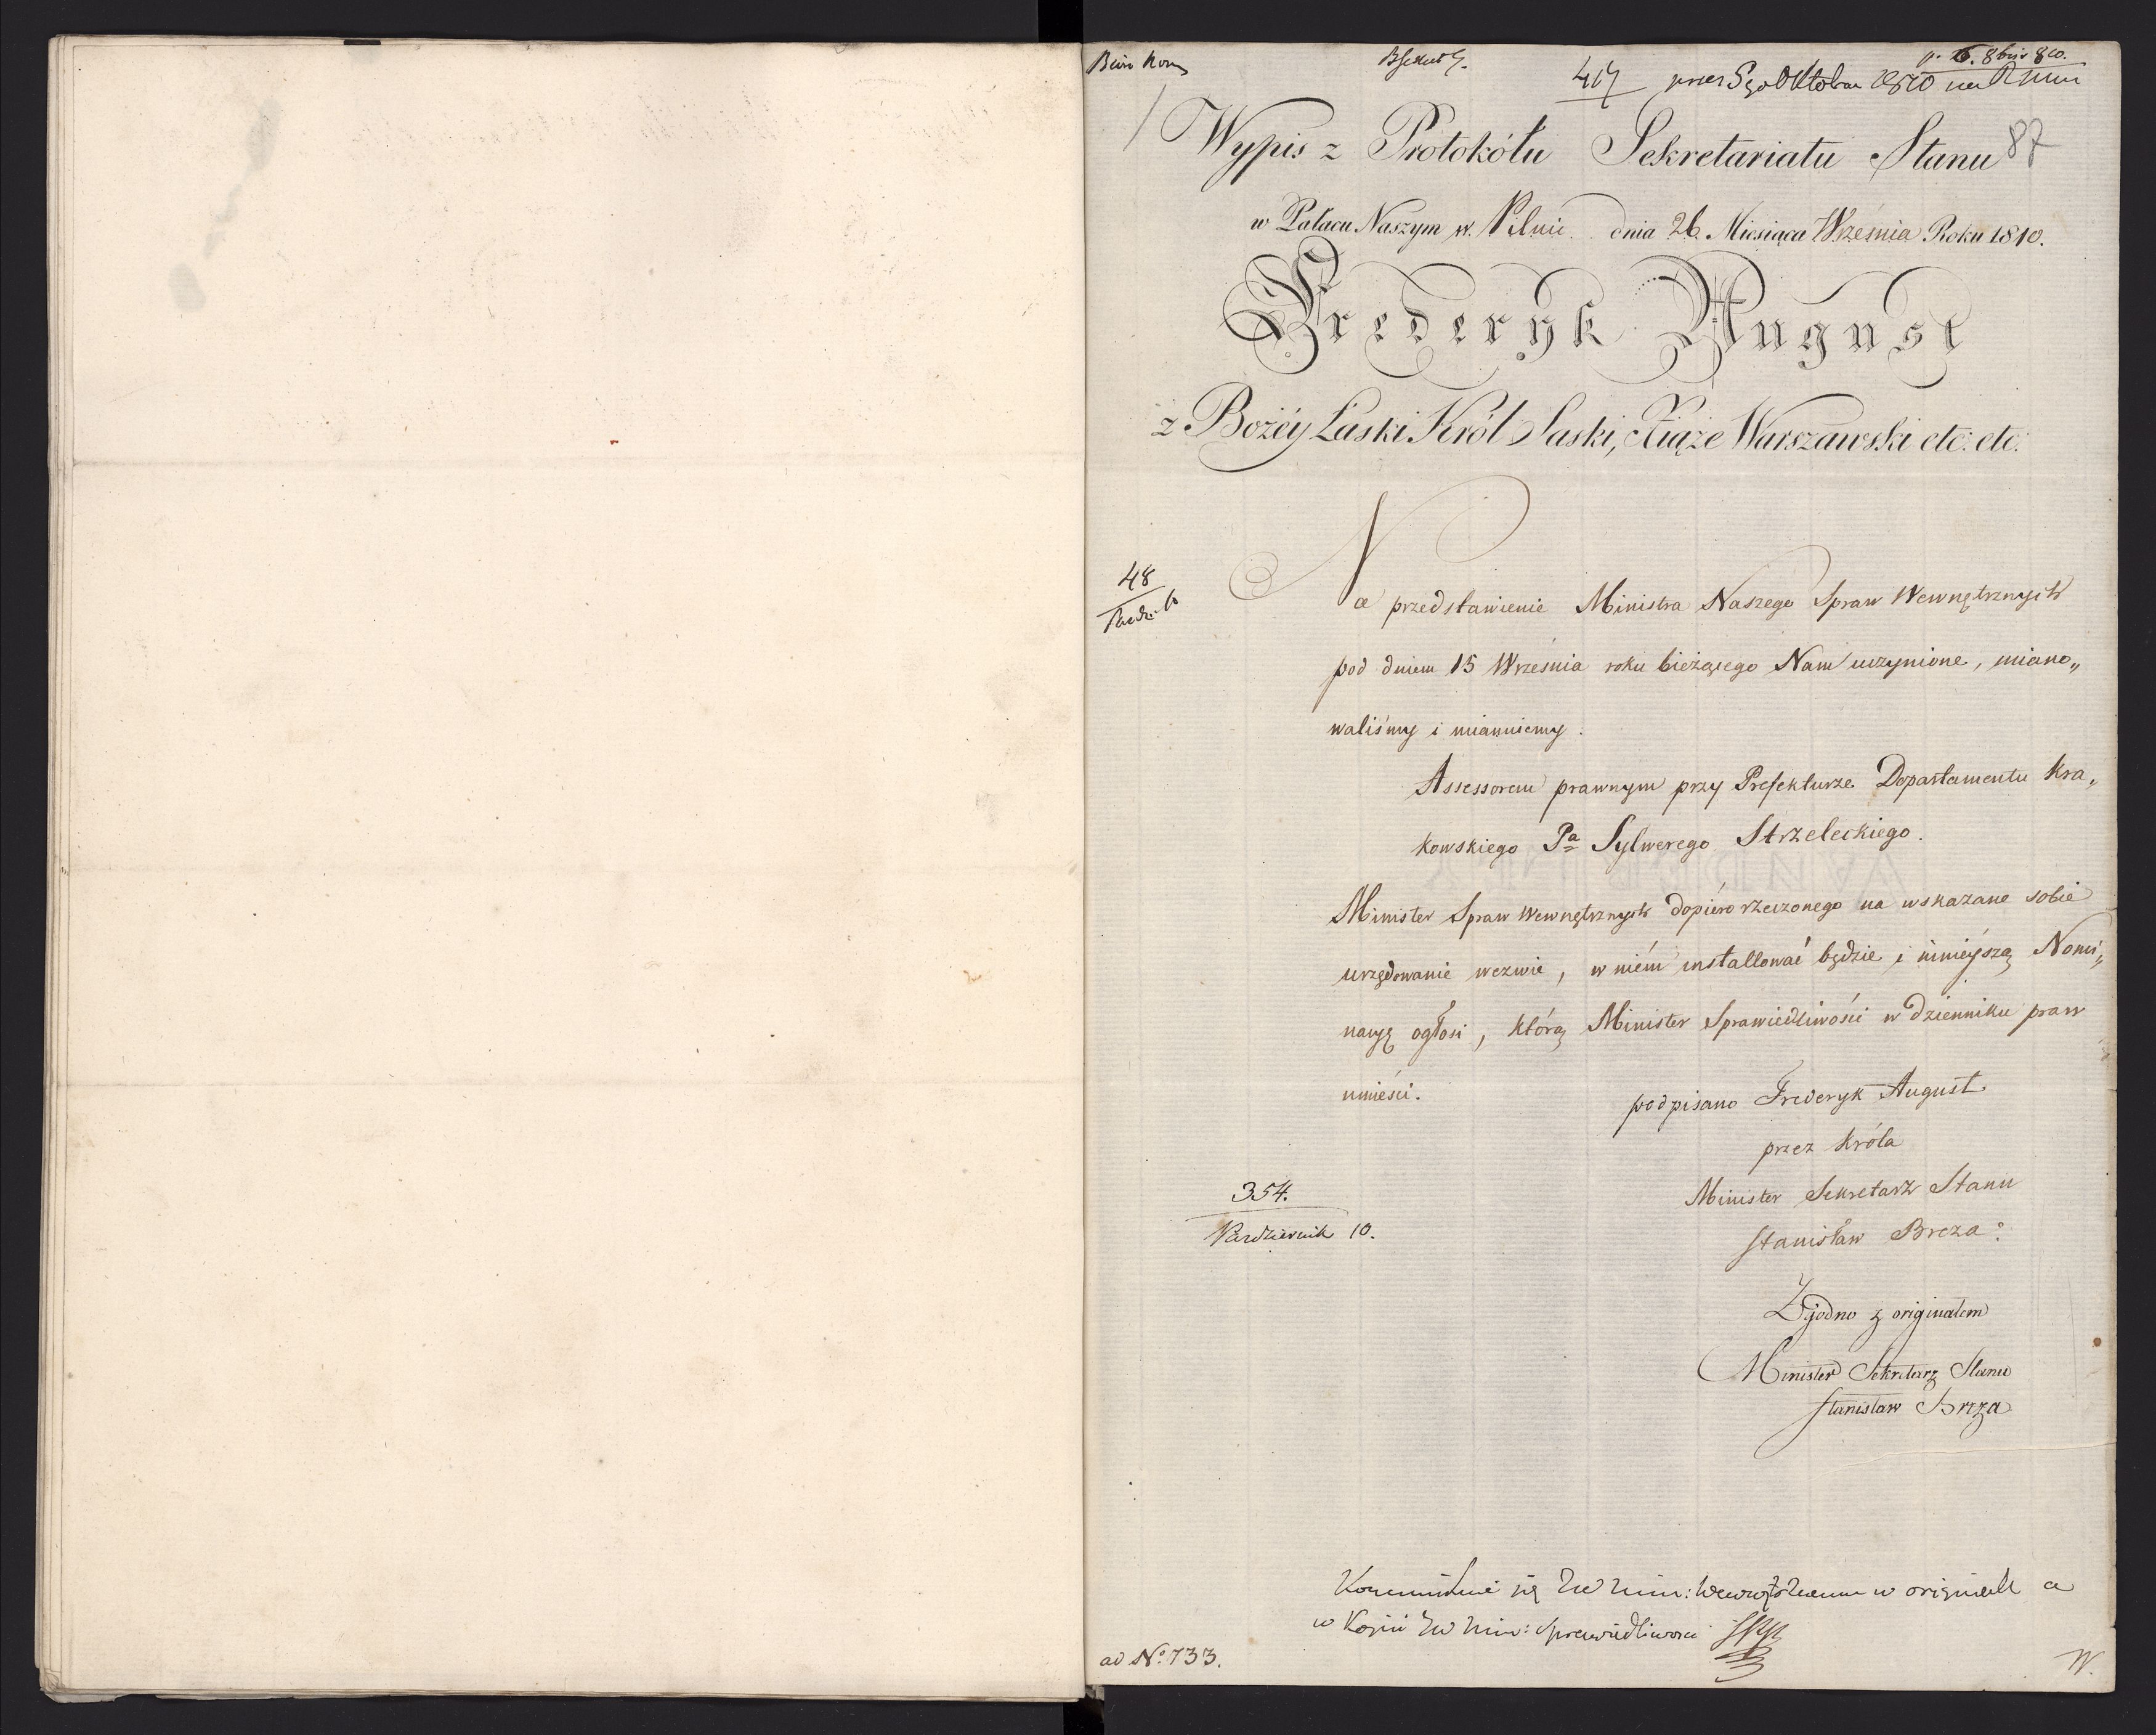 Biuro Kom
417
p. 6. 8bris 810.
87
Wypis z Protokółu Sekretariatu Stanu
w Pałacu Naszym w. Pilnic. dnia 26 Miesiąca Września Roku 1810.
Frederyk August
z Bożéy Łaski Król Saski, Xiąże Warszawski etc: etc:
48
Paźdz. 10
Na przedstawienie Ministra Naszego Spraw Wewnętrznych
pod dniem 15 Września roku bieżącego Nam uczynione, miano„
waliśmy i mianuiemy:
Assessorem prawnym przy Prefekturze Departamentu Kra„
kowskiego Pa Sylwerego Strzeleckiego.
Minister Spraw Wewnętrznych dopiéro rzeczonego na wskazane sobie
urzędowanie wezwie, w niém installować będzie i ninieyszą Nomi„
nacyę ogłosi, którą Minister Sprawiedliwości w dzienniku praw
umieści.
podpisano Frederyk August
przez Króla
Minister Sekretarz Stanu
Stanisław Breza:
354.
Pazdziernik 10.
Zgodno z originałem
Minister Sekretarz Stanu
Stanisław Breza
w originale a
w Kopii JW Min: Sprawiedliwosci
ad No. 733.
W.